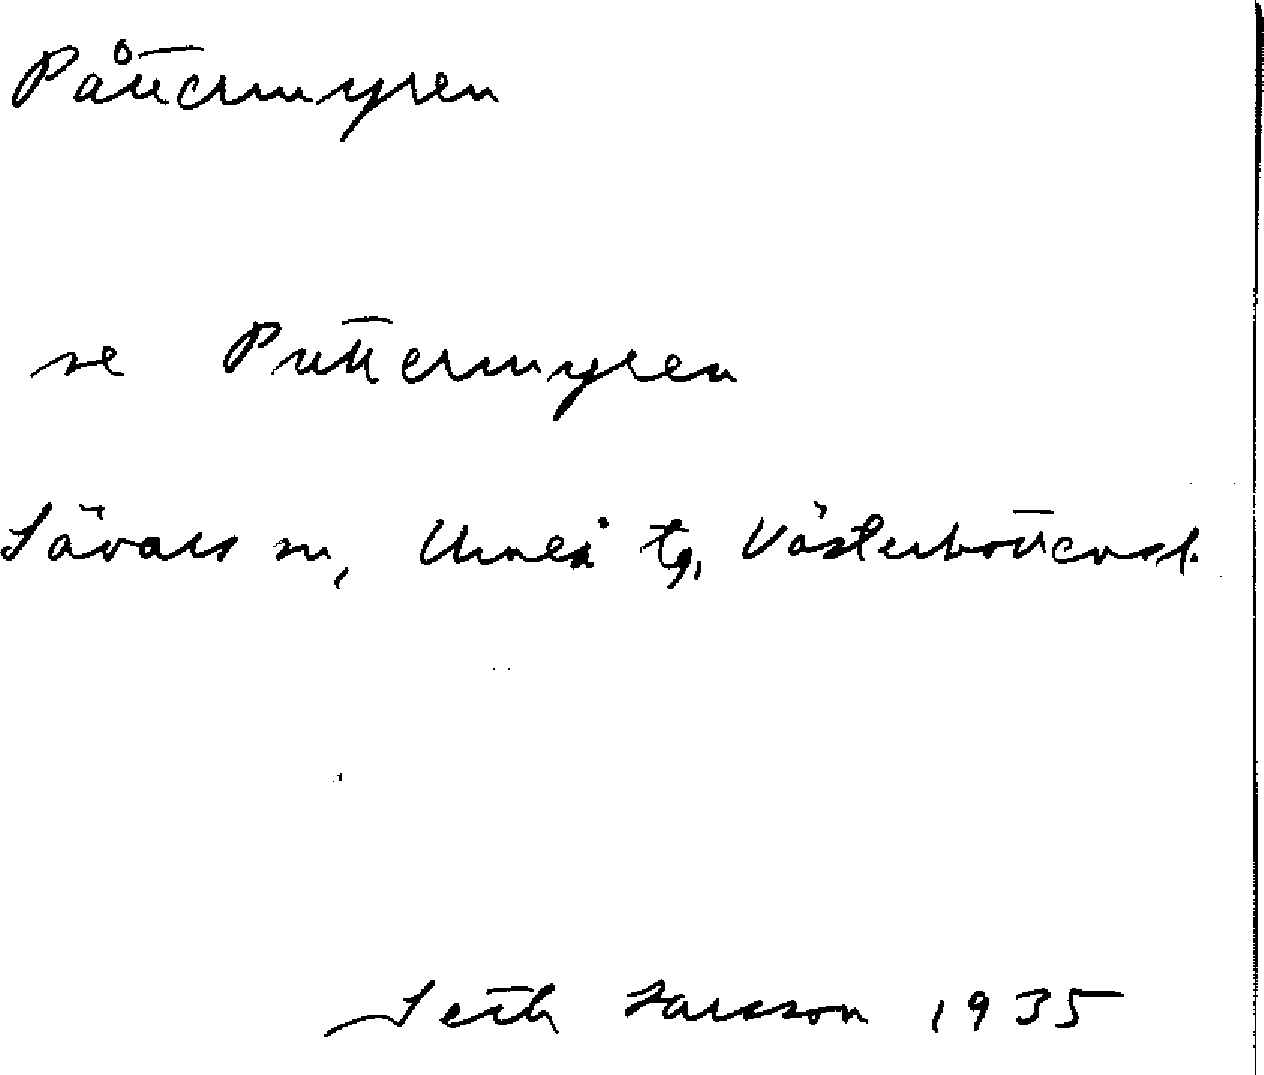 Påttermyren
se Puttermyren
Sävars sn, Umeå tg, Västerbottensl.
Seth Larsson 1935